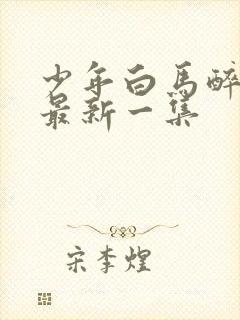 少年白马醉
最新一集
宋李煌